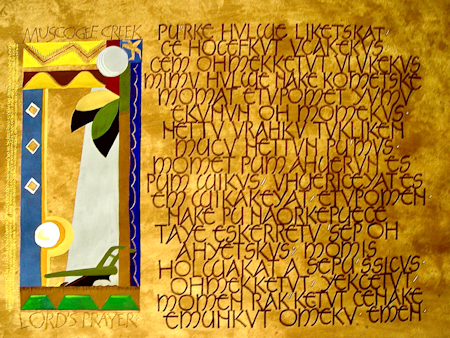 MUSCOGEE CREEK
PURKE HVLWE LIKETSKAT
CE HOCEFKVT VCAKEKVS
CEM OHMEKKETVT VLVKEKVS
MIMV HVLWE NAKE KOMETSKE
MOMAT ETVPOMET YVMV
EKVNVN OH MOMEKVS
NETTV VRAHKV TVKLIKEN
MUCV NETTVN PUMVS
MOMET PUM AHUERVN ES
PUM WIKVS VHUERICEYATES
EM WIKAKEYAT ETVPOMEN
NAKE PU NAORKEPUECE
TAYE ESKERRETV SEPOH
AHYETSKVS MOMIS
HOLWAKAT A SEPU'SSICVS
OHMEKKETVT YEKCETV
MOMEN RAKKETVT CENAKE
EMUNKVT OMEKV EMEN
LORD'S PRAYER